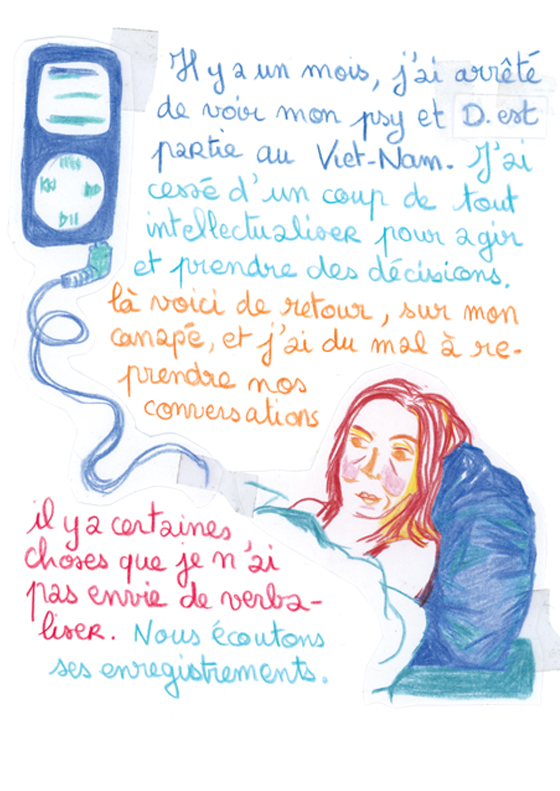 Il y a un mois, j'ai arrêté
de voir mon psy et D. est
partie au Viet-Nam. J'ai
cessé d'un coup de tout
intellectualiser pour agir
et prendre des décisions.
là voici de retour, sur mon
canapé, et j'ai du mal à re-
prendre nos
conversations
il y a certaines
choses que je n'ai
pas envie de verba-
liser. Nous écoutons
ses enregistrements.